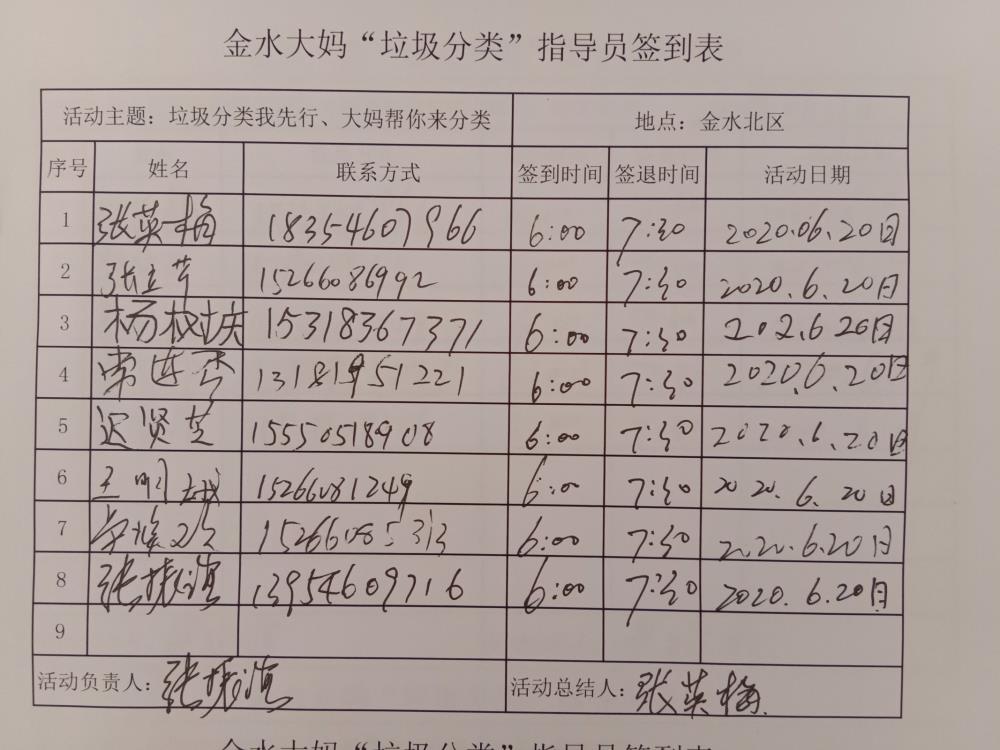 金水大妈“垃圾分类”指导员签到表
活动主题：垃圾分类我先行、大妈帮你来分类 地点：金水北区
序号 姓名 联系方式 签到时间 签退时间 活动日期
1 张英梅 18354607966 6:00 7:30 2020.06.20日
2 张立芹 15266086992 6:00 7:30 2020.6.20日
3 杨树庆 15318367371 6:00 7:30 202.6.20日
4 常连香 13181951221 6:00 7:30 2020.6.20日
5 迟贤芝 15550518908 6:00 7:30 2020.6.20日
6 王明 15266081249 6:00 7:30 2020.6.20日
7 15266085313 6:00 7:30 2020.6.20日
8 张振滨 13954609716 6:00 7:30 2020.6.20日
9
活动负责人：张振滨 活动总结人：张英梅
金水大妈“垃圾分类”指导员签到表